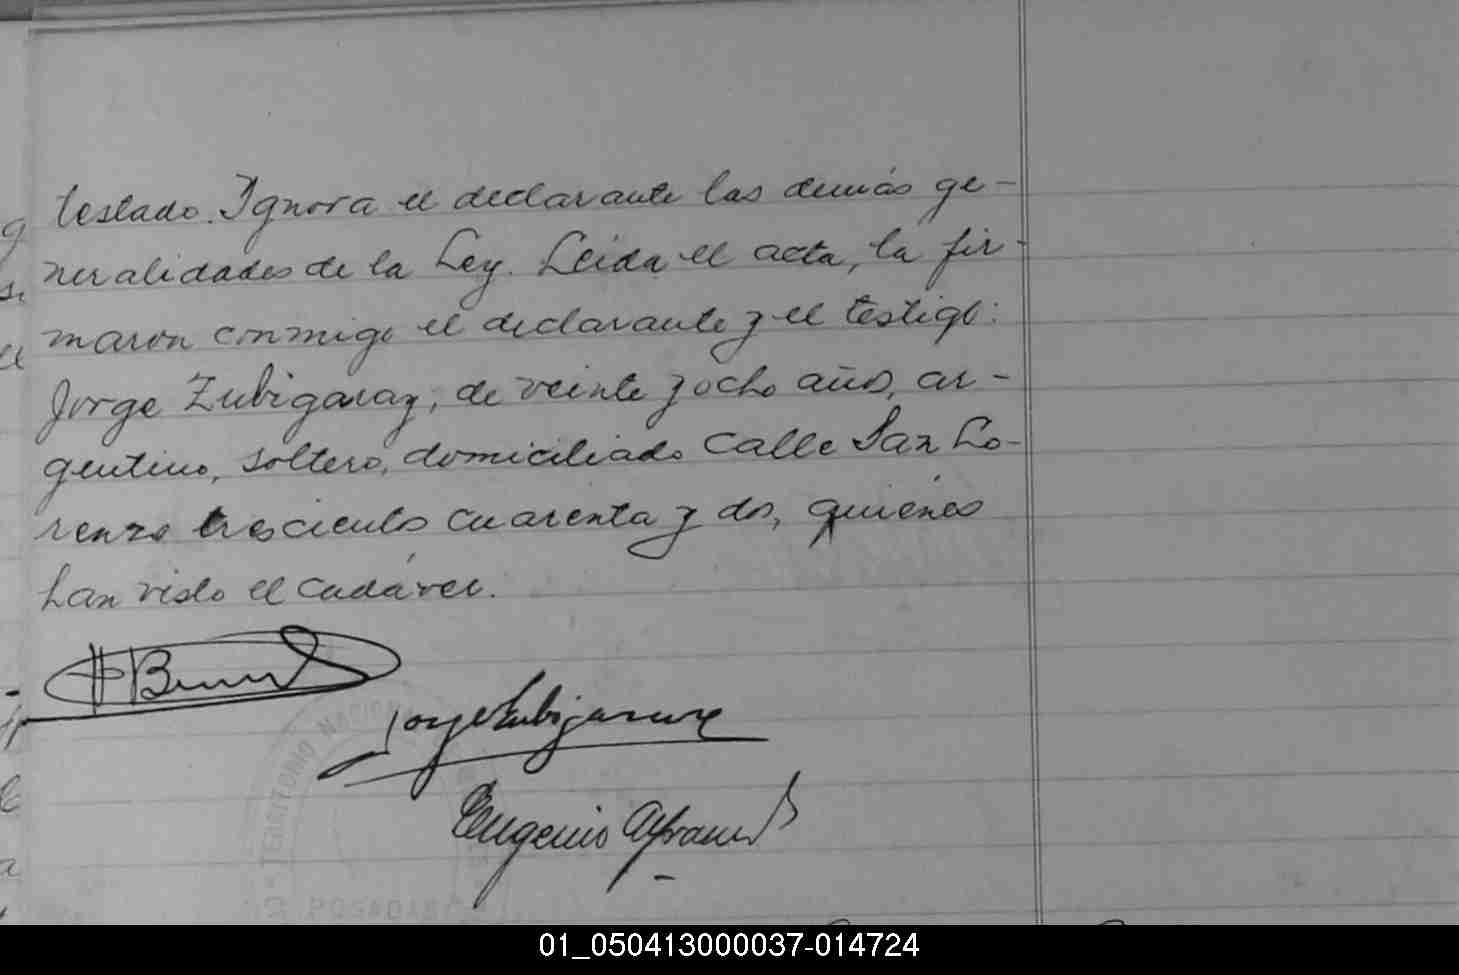 testado. Ignora el declarante las demás ge-
neralidades de la Ley. Leida el acta, la fir-
maron conmigo el declarante y el testigo:
Jorge Zubigaray, de veinte y ocho años, ar-
gentino, soltero, domiciliado calle San Lo-
renzo trescientos cuarenta y dos, quiénes
han visto el cadáver.
Jorge Zubigaray
Eugenio
TERRITORIO NACIONAL
POSADAS
01_050413000037-014724